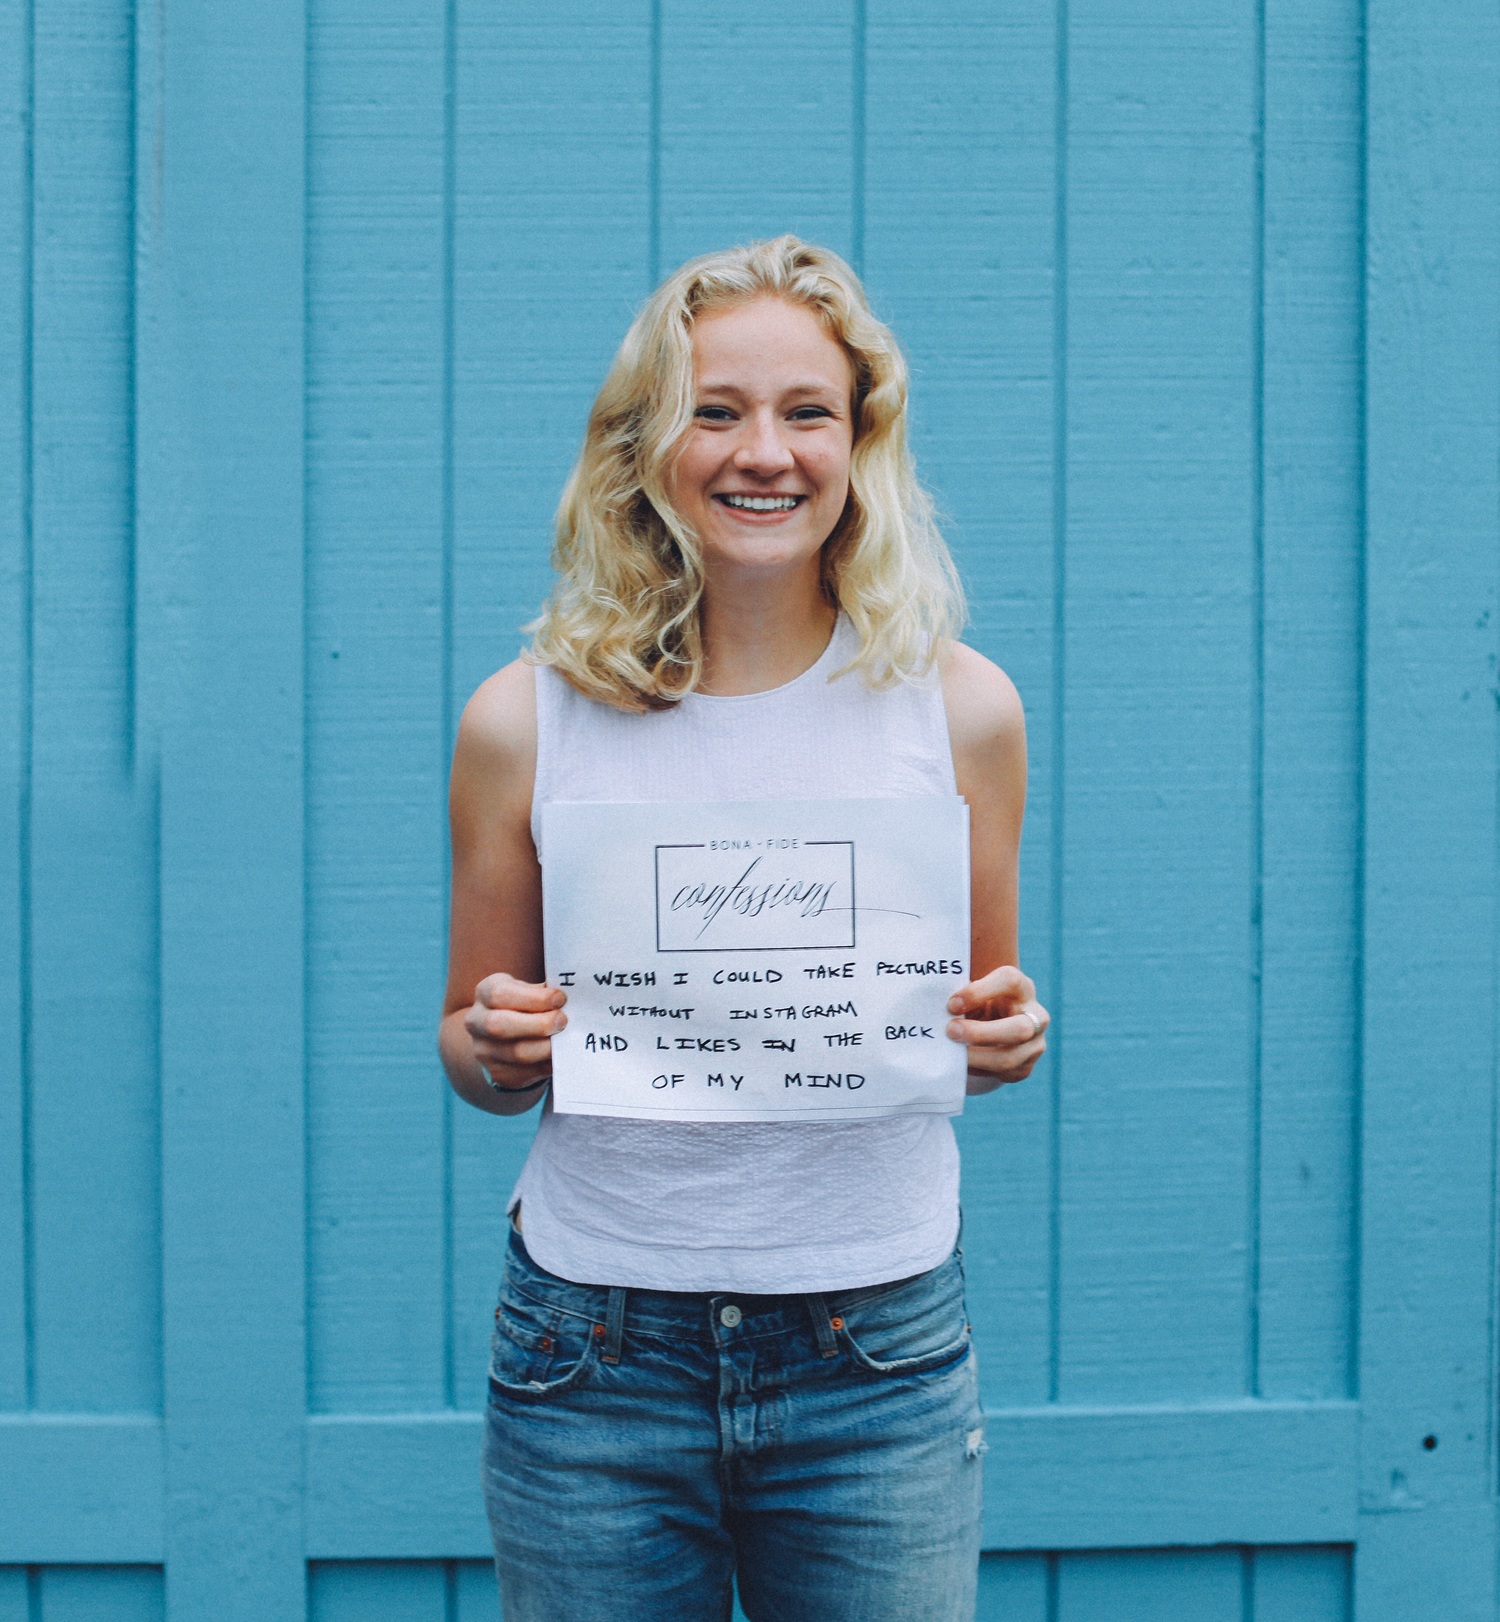 BONA - FIDE
confessions
I WISH I COULD TAKE PICTURES
WITHOUT INSTAGRAM
AND LIKES IN THE BACK
OF MY MIND